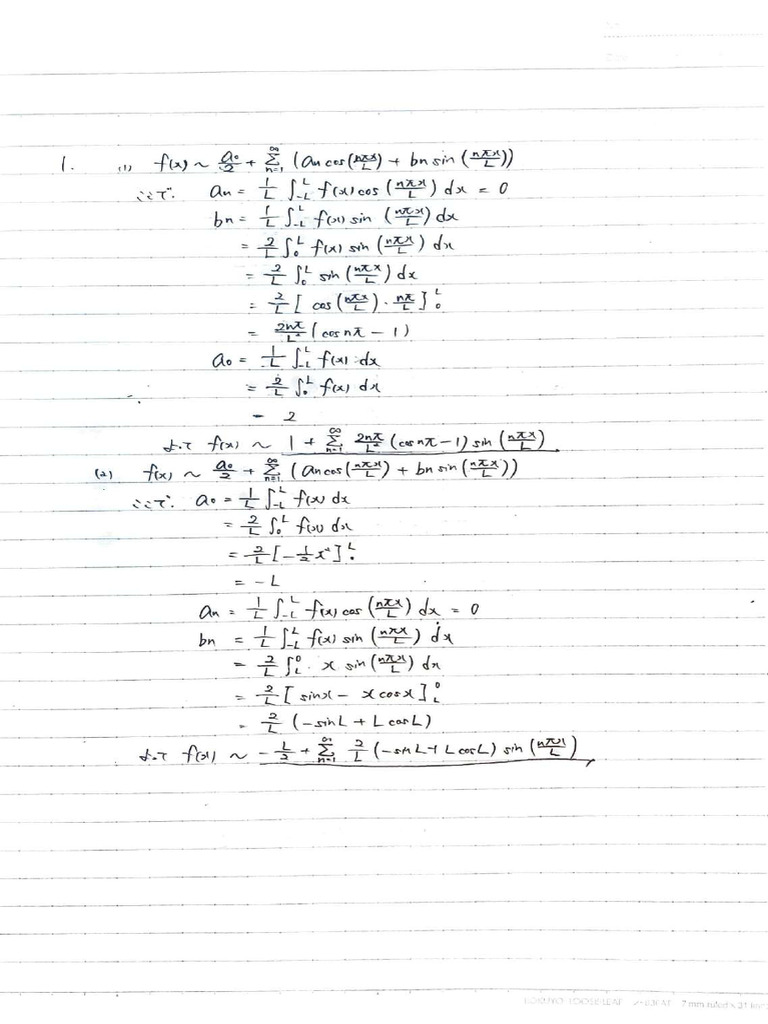 1. (1) f(x) ~ a₀/2 + Σ_{n=1}^{∞} (an cos(nπx/L) + bn sin(nπx/L))
ここで. an = 1/L ∫_{-L}^{L} f(x) cos(nπx/L) dx = 0
bn = 1/L ∫_{-L}^{L} f(x) sin(nπx/L) dx
= 2/L ∫_0^L f(x) sin(nπx/L) dx
= 2/L ∫_0^L sin(nπx/L) dx
= 2/L [ cos(nπx/L) · nπ/L ]_0^L
= 2nπ/L² (cos nπ - 1)
a₀ = 1/L ∫_{-L}^{L} f(x) dx
= 2/L ∫_0^L f(x) dx
= 2
よって f(x) ~ 1 + Σ_{n=1}^{∞} 2nπ/L² (cos nπ - 1) sin(nπx/L)
(2) f(x) ~ a₀/2 + Σ_{n=1}^{∞} (an cos(nπx/L) + bn sin(nπx/L))
ここで. a₀ = 1/L ∫_{-L}^{L} f(x) dx
= 2/L ∫_0^L f(x) dx
= 2/L [-1/2 x²]_0^L
= -L
an = 1/L ∫_{-L}^{L} f(x) cos(nπx/L) dx = 0
bn = 1/L ∫_{-L}^{L} f(x) sin(nπx/L) dx
= 2/L ∫_L^0 x sin(nπx/L) dx
= 2/L [sin x - x cos x]_L^0
= 2/L (-sin L + L cos L)
よって f(x) ~ -L/2 + Σ_{n=1}^{∞} 2/L (-sin L + L cos L) sin(nπx/L)
KOKUYO LOOSE-LEAF 7 mm ruled